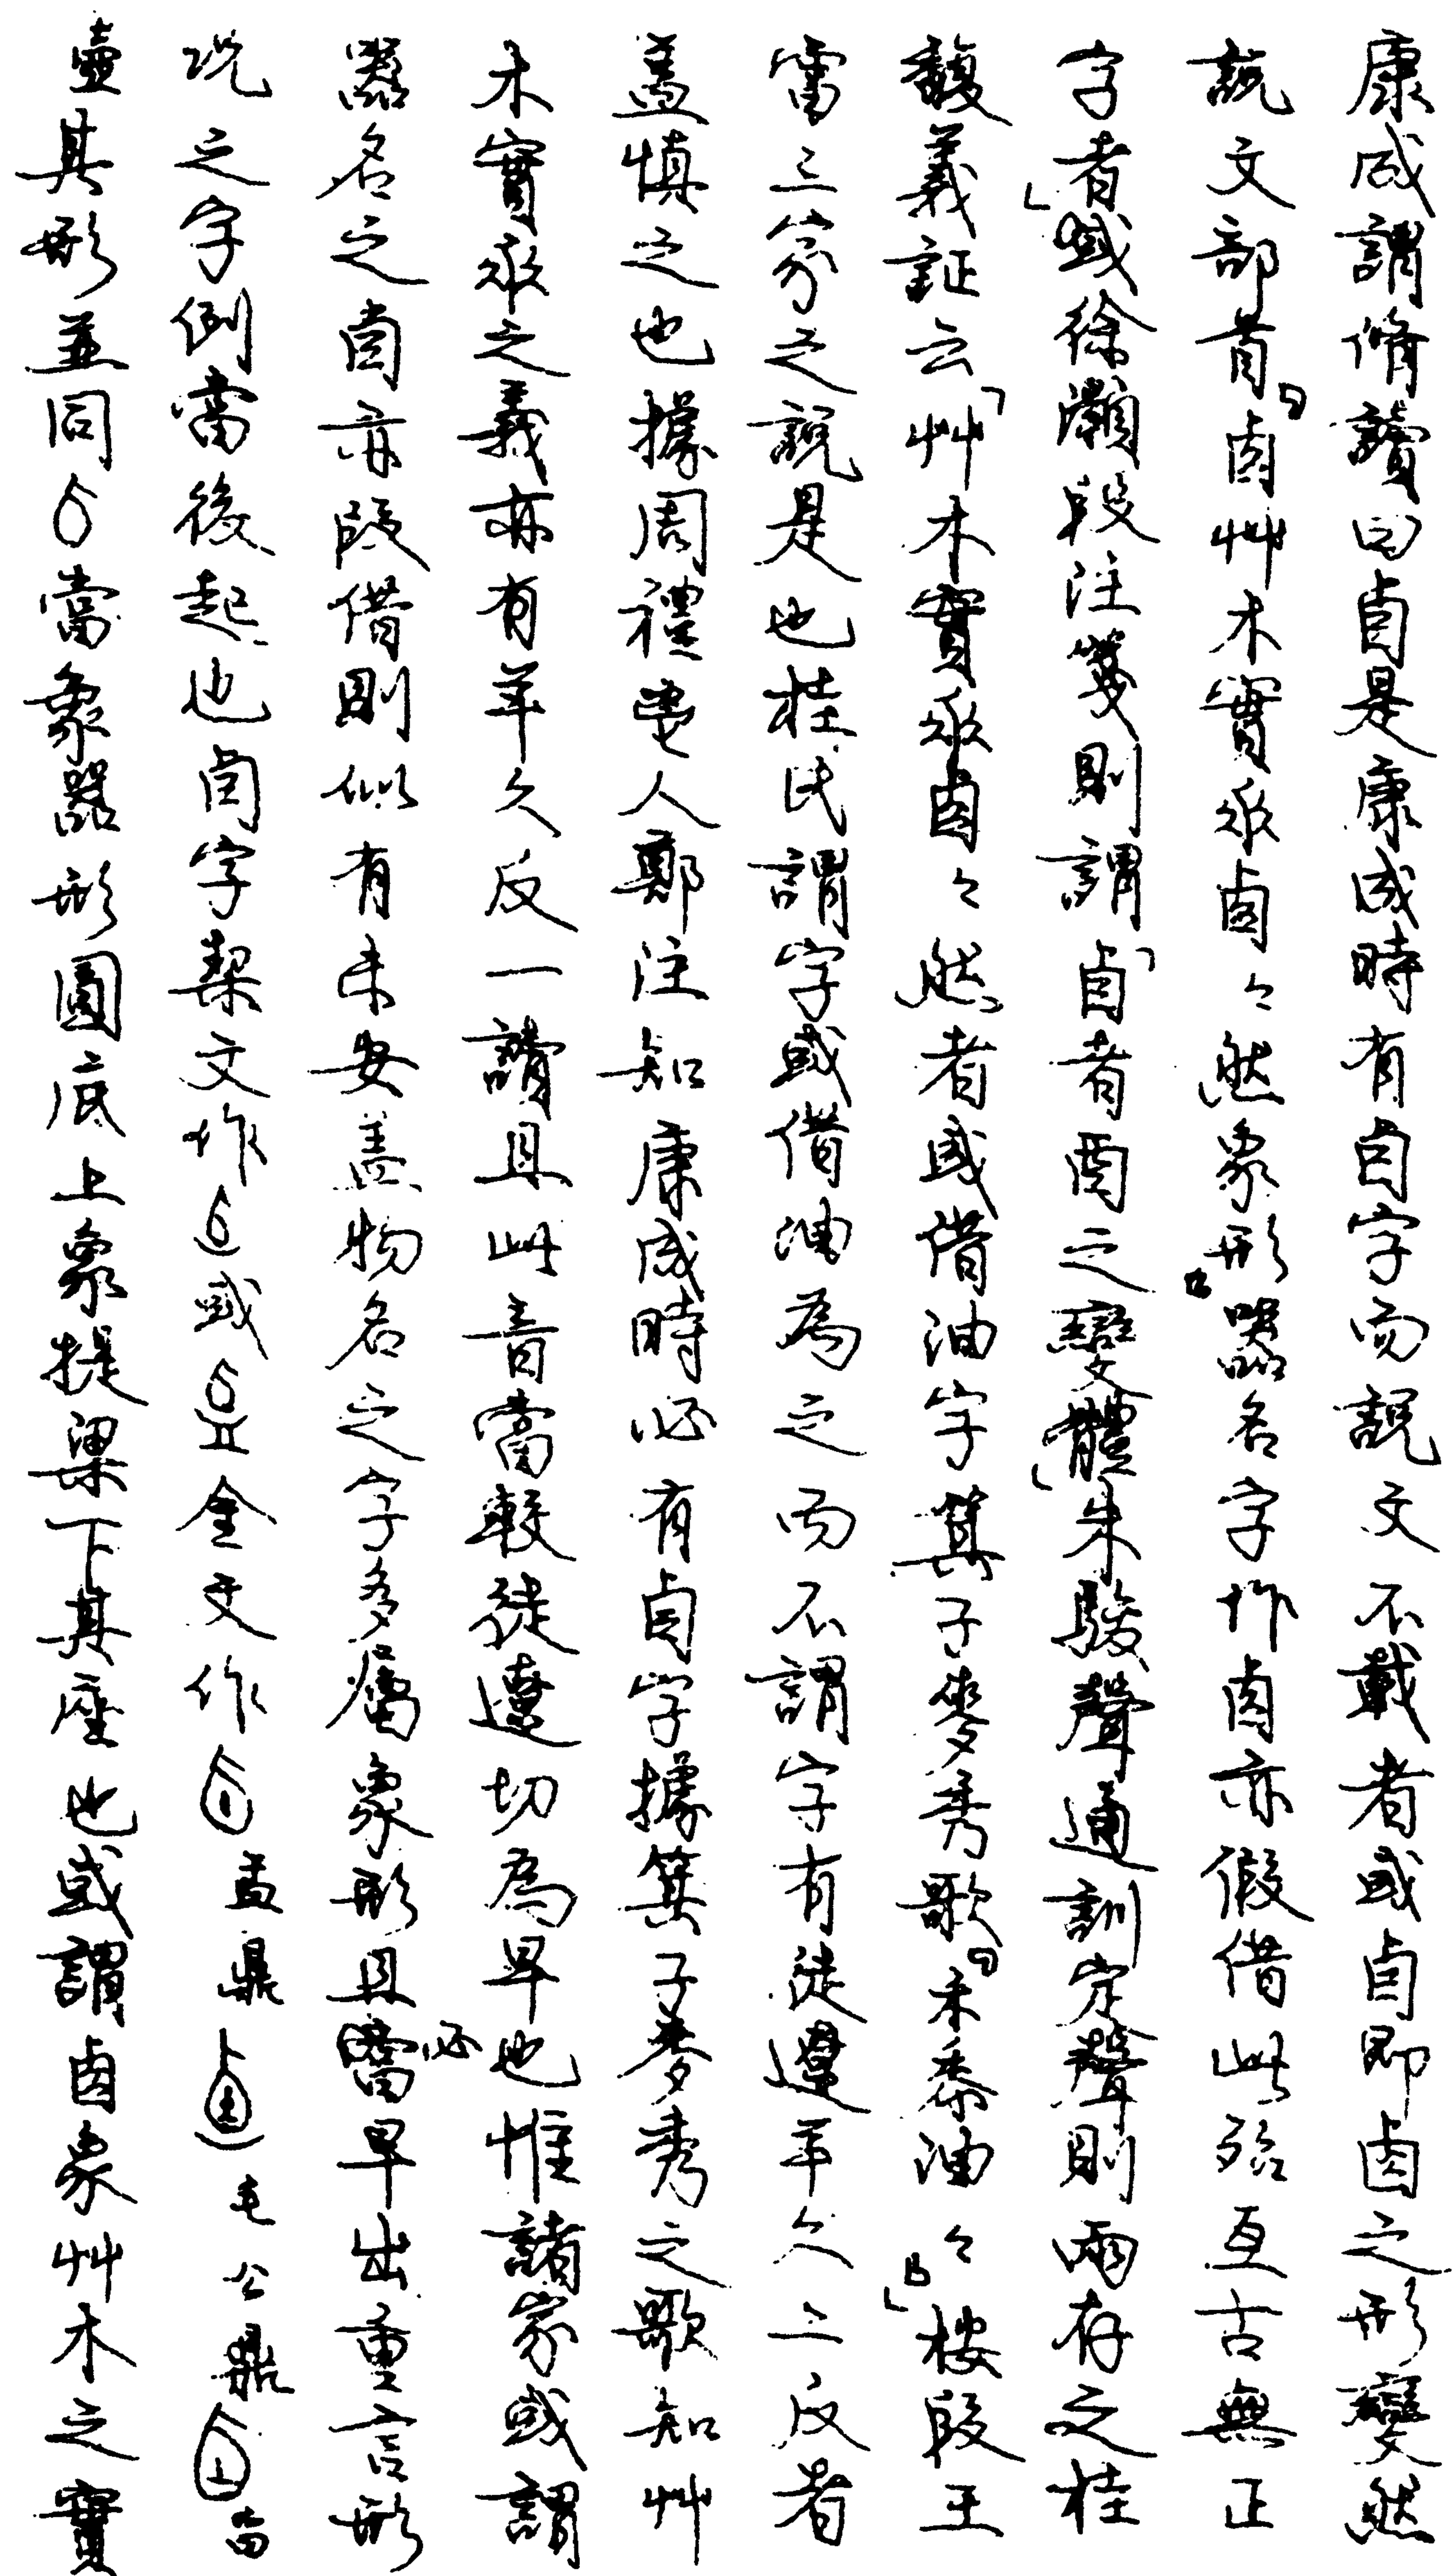 康成謂脩讀曰卣是康成時有卣字而說文不載者或卣即卤之形變然
說文部首『卤艸木實𠂹卤々然象形』器名字作卤亦假借此殆亙古無正
字者」或徐灝段注箋則謂「卣者卤之變體」朱駿聲通訓定聲則兩存之桂
馥義証云「艸木實𠂹卤々然者或借油字箕子麥秀歌『禾黍油々』」按段王
三家之說是也桂氏謂字或借油為之而不謂字有徒遼羊久二反者
蓋慎之也據周禮鬯人鄭注知康成時必有卣字據箕子麥秀之歌知艸
木實𠂹之義亦有羊久反一讀且此音當較徒遼切為早也惟諸家或謂
器名之卣亦叚借則似有未安蓋物名之字多屬象形且必早出重言形
況之字例當後起也卣字栔文作或金文作盂鼎毛公鼎
壺其形並同當象器形圓底上象提梁下其座也或謂卤象艸木之實